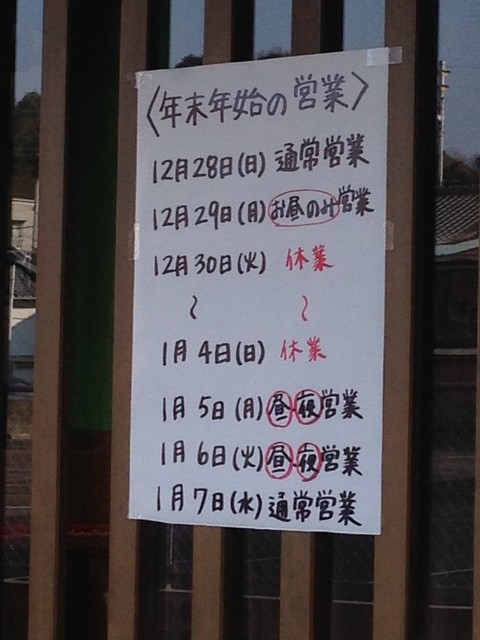 〈年末年始の営業〉
12月28日(日) 通常営業
12月29日(月) お昼のみ営業
12月30日(火) 休業
〜 〜
1月4日(日) 休業
1月5日(月) 昼・夜営業
1月6日(火) 昼・夜営業
1月7日(水) 通常営業